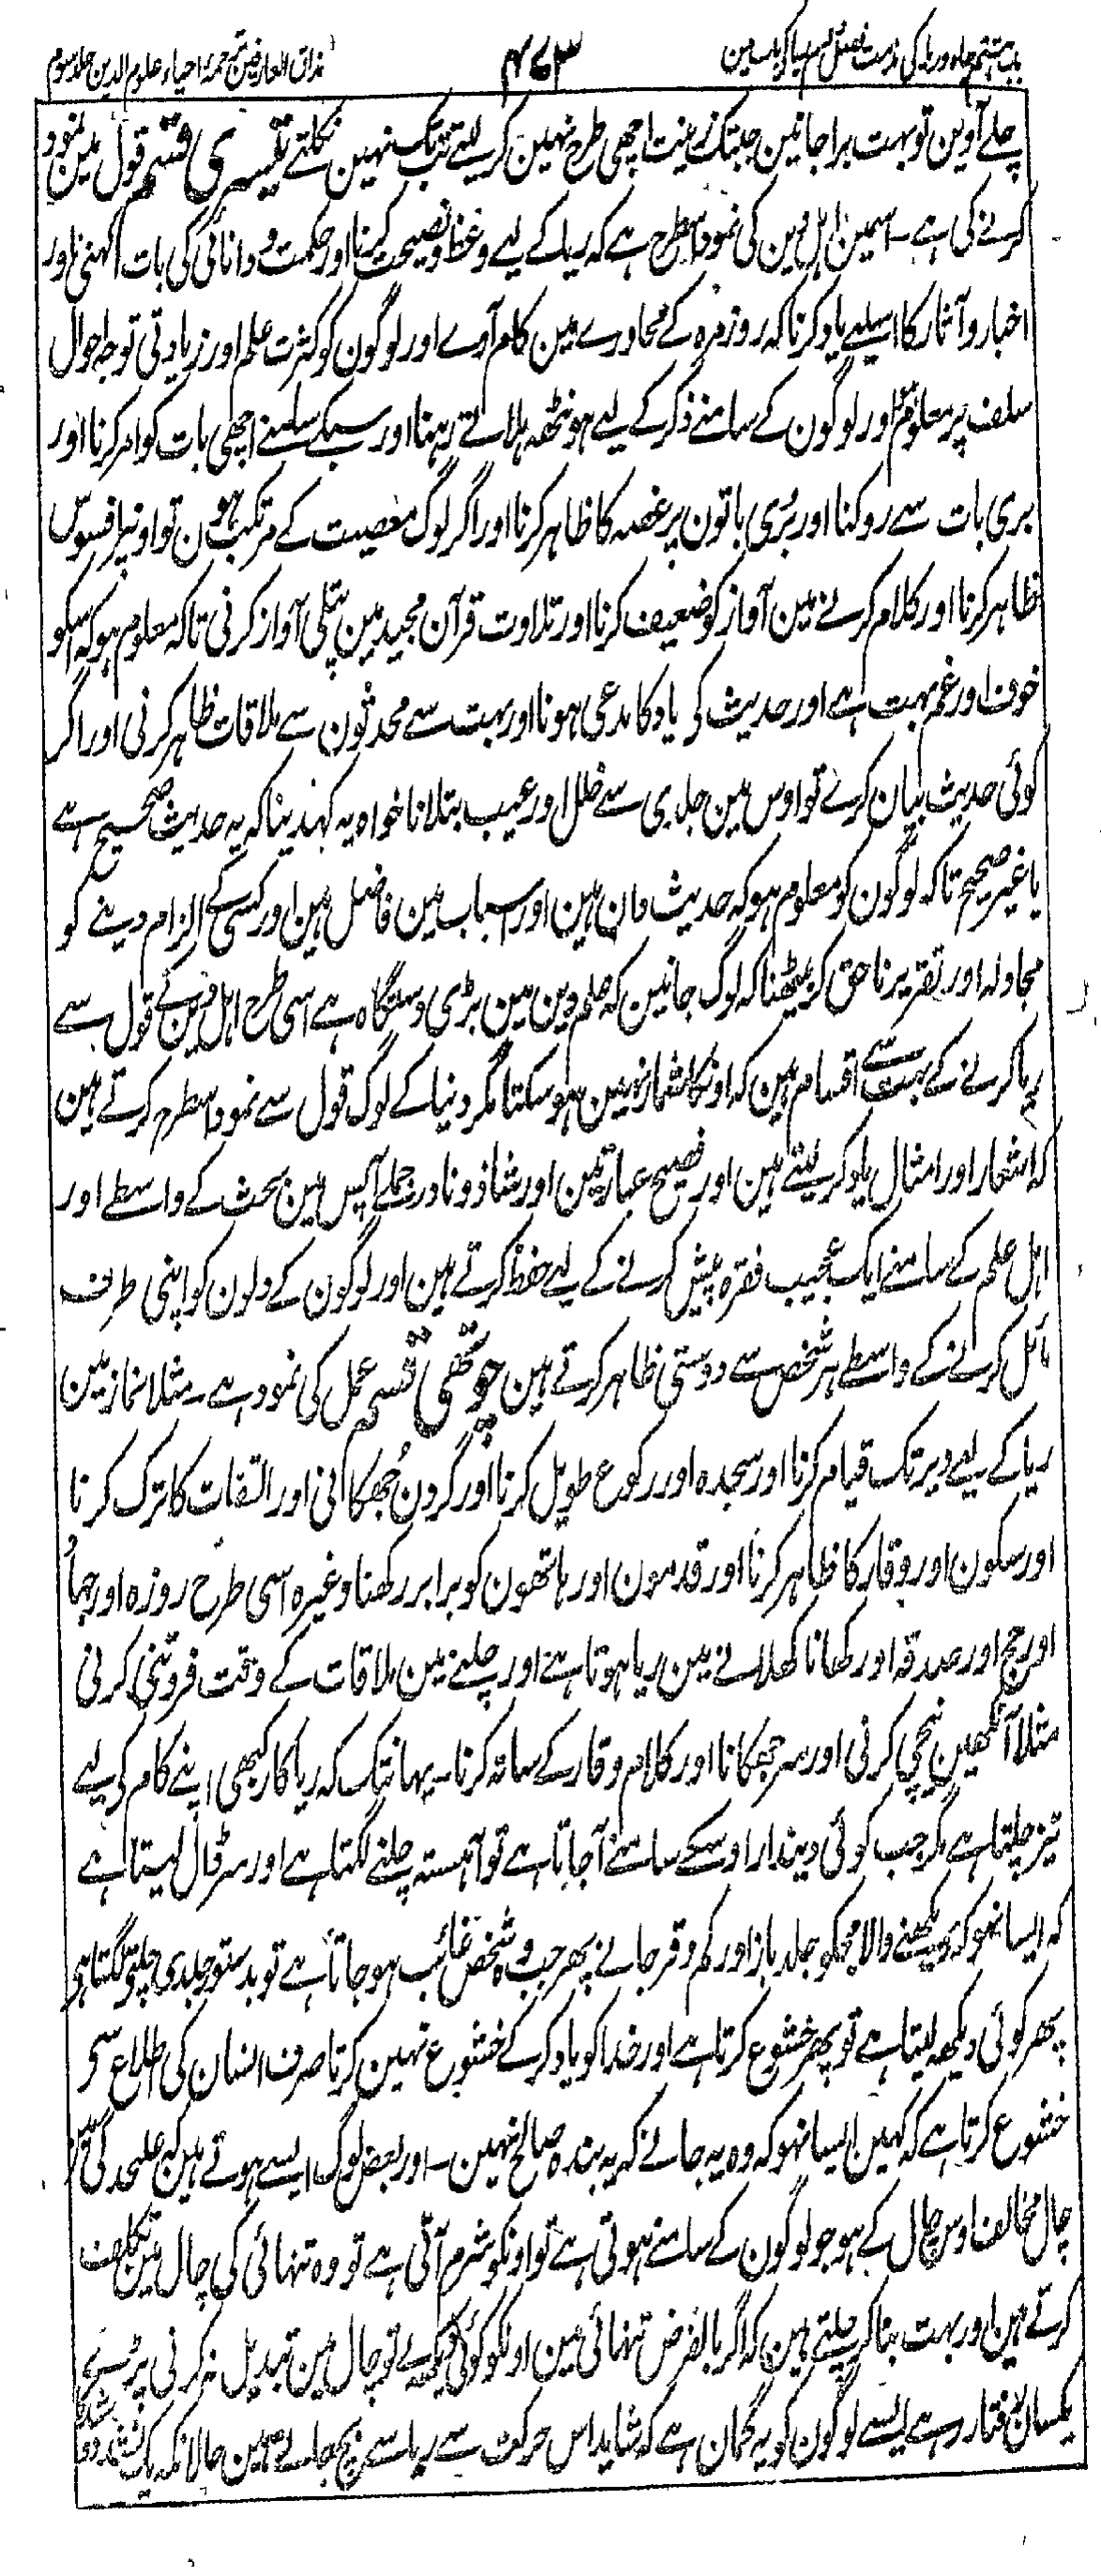 باب ہشتم جاہ و ریا کی مذمت فصل ریا کے بیان مین
۴۶۳
مذاق العارفین ترجمہ احیاء علوم الدین جلد سوم
چلے آوین تو بہت برا جانین جبتک زینت اچھی طرح نہین کر لیتے تب تک نہین نکلتے تیسری قسم قول مین نمود
کرنے کی ہے ۔ اسمین اہل دین کی نمود اسطرح ہے کہ ریا کے لیے وعظ و نصیحت کرنا اور حکمت و دانائی کی بات کہنی اور
اخبار و آثار کا اسلیے یاد کرنا کہ روزمرہ کے محاورے مین کام آوے اور لوگون کو کثرت علم اور زیادتی توجہ احوال
سلف پر معلوم ہو اور لوگون کے سامنے ذکر کے لیے ہونٹھہ ہلاتے رہنا اور سبکے سامنے اچھی بات کو امر کرنا اور
بری بات سے روکنا اور بری باتون پر غصہ کا ظاہر کرنا اور اگر لوگ معصیت کے مرتکب ہون تو اونپر افسوس
ظاہر کرنا اور کلام کرنے مین آواز کو ضعیف کرنا اور تلاوت قرآن مجید مین پتلی آواز کرنی تاکہ معلوم ہو کہ اسکو
خوف اور غم بہت ہے اور حدیث کی یاد کا مدعی ہونا اور بہت سے محدثون سے ملاقات ظاہر کرنی اور اگر
کوئی حدیث بیان کرے تو اوس مین جلدی سے خلل اور عیب بتلانا خواہ یہ کہدینا کہ یہ حدیث صحیح ہے
یا غیر صحیح تاکہ لوگون کو معلوم ہو کہ حدیث دان ہین اور اسباب مین فاضل ہین اور کسی کے الزام دینے کو
مجادلہ اور تقریر ناحق کر بیٹھنا کہ لوگ جانین کہ علم دین مین بڑی دستگاہ ہے اسی طرح اہل دین کے قول سے
ریا کرنے کے بہت سے اقسام ہین کہ اونکا شمار نہین ہو سکتا مگر دنیا کے لوگ قول سے نمود اسطرح کرتے ہین
کہ اشعار اور امثال یاد کر لیتے ہین اور فصیح عبارتین اور شاذ و نادر جملے آپس مین بحث کے واسطے اور
اہل علم کے سامنے ایک عجیب فقرہ پیش کرنے کے لیے حفظ کرتے ہین اور لوگون کے دلون کو اپنی طرف
مائل کرنے کے واسطے ہر شخص سے دوستی ظاہر کرتے ہین چوتھی قسم عمل کی نمود ہے ۔ مثلا نماز مین
ریا کے لیے دیر تک قیام کرنا اور سجدہ اور رکوع طویل کرنا اور گردن جُھکانی اور التفات کا ترک کرنا
اور سکون اور وقار کا ظاہر کرنا اور قدمون اور ہاتھون کو برابر رکھنا وغیرہ اسی طرح روزہ اور جہاد
اور حج اور صدقہ اور کھانا کھلانے مین ریا ہوتا ہے اور چلنے مین ملاقات کے وقت فروتنی کرنی
مثلا آنکھین نیچی کرنی اور سر جھکانا اور کلام وقار کے ساتہ کرنا ۔ یہانتک کہ ریاکار کبھی اپنے کام کے لیے
تیز چلتا ہے مگر جب کوئی دیندار اوسکے سامنے آجاتا ہے تو آہستہ چلنے لگتا ہے اور سر ڈال لیتا ہے
کہ ایسا نہو کہ دیکھنے والا مجکو جلد باز اور کم وقر جانے پھر جب وہ شخص غائب ہو جاتا ہے تو بدستور جلدی چلنے لگتا ہے
پھر کوئی دیکھ لیتا ہے تو پھر خشوع کرتا ہے اور خدا کو یاد کر کے خشوع نہین کرتا صرف انسان کی اطلاع سے
خشوع کرتا ہے کہ کہین ایسا نہو کہ وہ یہ جانے کہ یہ بندہ صالح نہین ۔ اور بعض لوگ ایسے ہوتے ہین کہ علٰحدگی کی
چال مخالف اوس چال کے ہو جو لوگون کے سامنے ہوتی ہے تو اونکو شرم آتی ہے تو وہ تنہائی کی چال مین تکلف
کرتے ہین اور بہت بنا کر چلتے ہین کہ اگر بالفرض تنہائی مین اونکو کوئی دیکھے تو چال مین تبدیل نہ کرنی پڑے
یکسان رفتار رہے ایسے لوگون کو یہ گمان ہے کہ شاید اس حرکت سے ریا سے بچ جاتے ہین حالانکہ